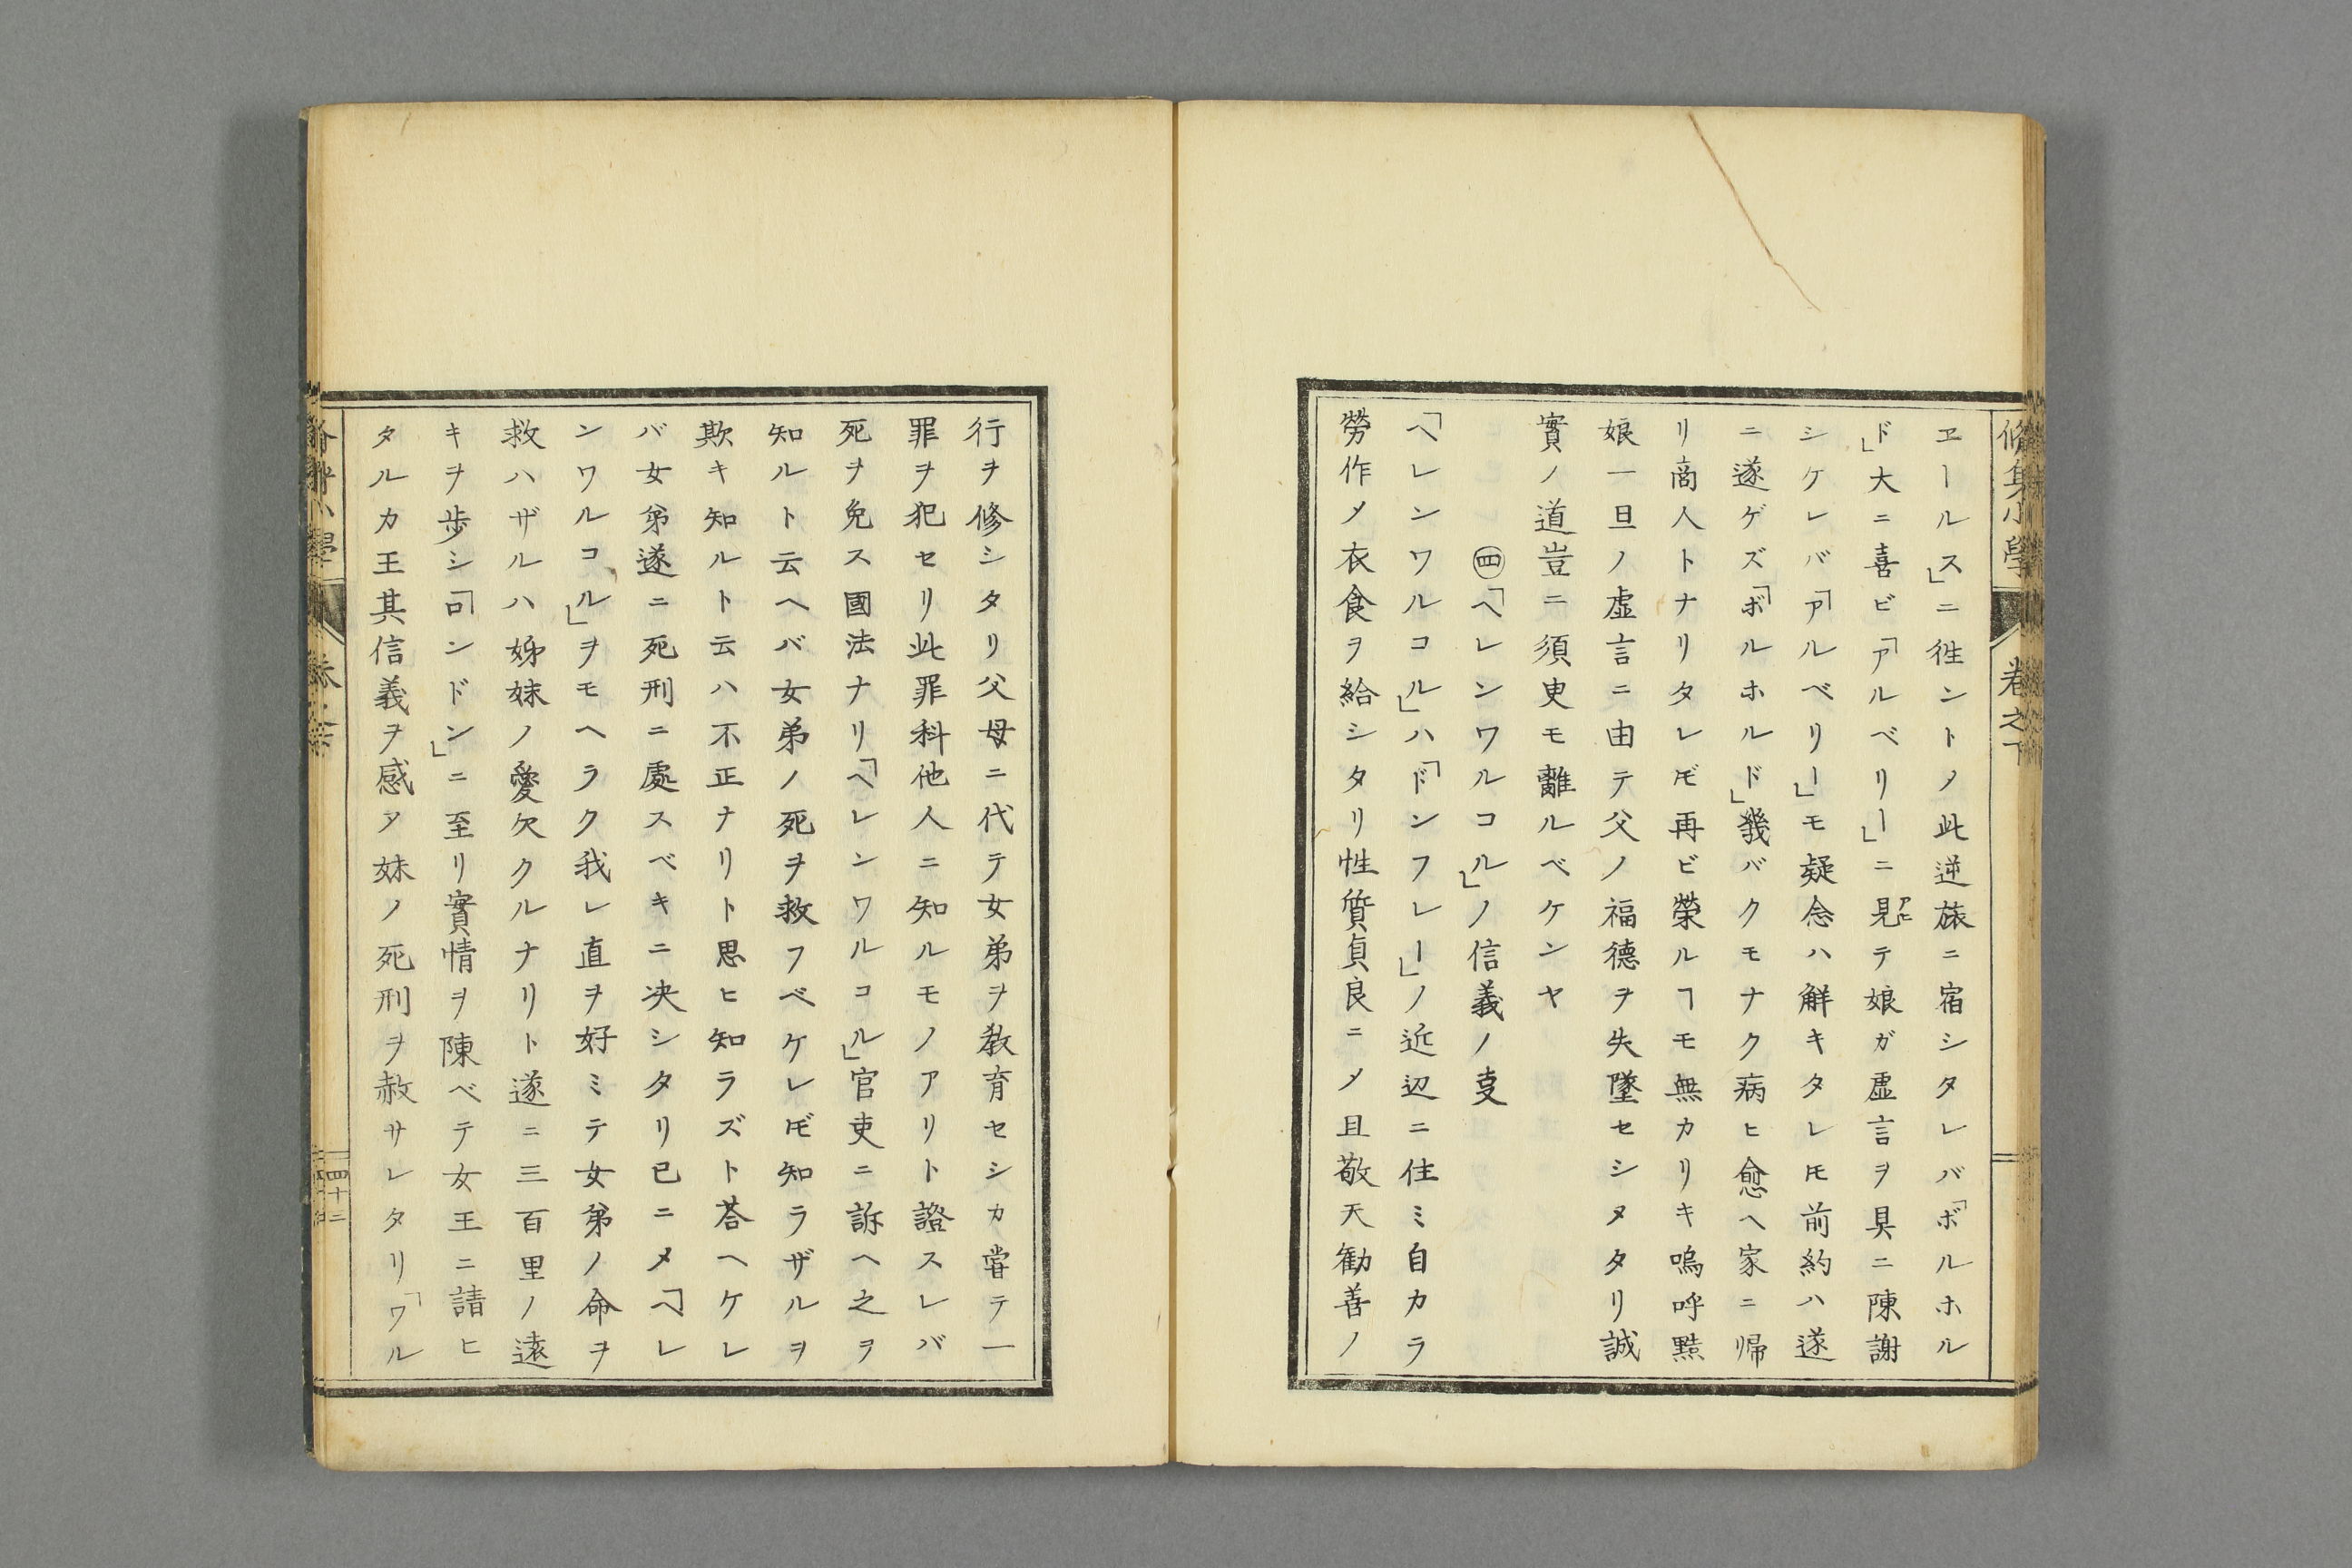 脩身小學 卷之下
ヱールス」ニ徃ントノ此逆旅ニ宿シタレバ「ボルホル
ド」大ニ喜ビ「アルベリー」ニ見テ娘ガ虚言ヲ具ニ陳謝
アヒ
シケレバ「アルベリー」モ疑念ハ解キタレ𪜈前約ハ遂
ニ遂ゲズ「ボルホルド」幾バクモナク病ヒ愈ヘ家ニ帰
リ商人トナリタレ𪜈再ビ榮ルヿモ無カリキ嗚呼黠
娘一旦ノ虚言ニ由テ父ノ福德ヲ失墜セシメタリ誠
實ノ道豈ニ須臾モ離ルベケンヤ
㊃「ヘレンワルコル」ノ信義ノ㕝
「ヘレンワルコル」ハ「ドンフレー」ノ近辺ニ住ミ自カラ
勞作メ衣食ヲ給シタリ性質貞良ニメ且敬天勧善ノ
行ヲ修シタリ父母ニ代テ女弟ヲ敎育セシカ甞テ一
罪ヲ犯セリ此罪科他人ニ知ルモノアリト證スレバ
死ヲ免ス國法ナリ「ヘレンワルコル」官吏ニ訴ヘ之ヲ
知ルト云ヘバ女弟ノ死ヲ救フベケレ𪜈知ラザルヲ
欺キ知ルト云ハ不正ナリト思ヒ知ラズト荅ヘケレ
バ女弟遂ニ死刑ニ處スベキニ决シタリ已ニメ「ヘレ
ンワルコル」ヲモヘラク我レ直ヲ好ミテ女弟ノ命ヲ
救ハザルハ姊妹ノ愛欠クルナリト遂ニ三百里ノ遠
キヲ歩シ「ロンドン」ニ至リ實情ヲ陳ベテ女王ニ請ヒ
タルカ王其信義ヲ感ア妹ノ死刑ヲ赦サレタリ「ワル
四十二